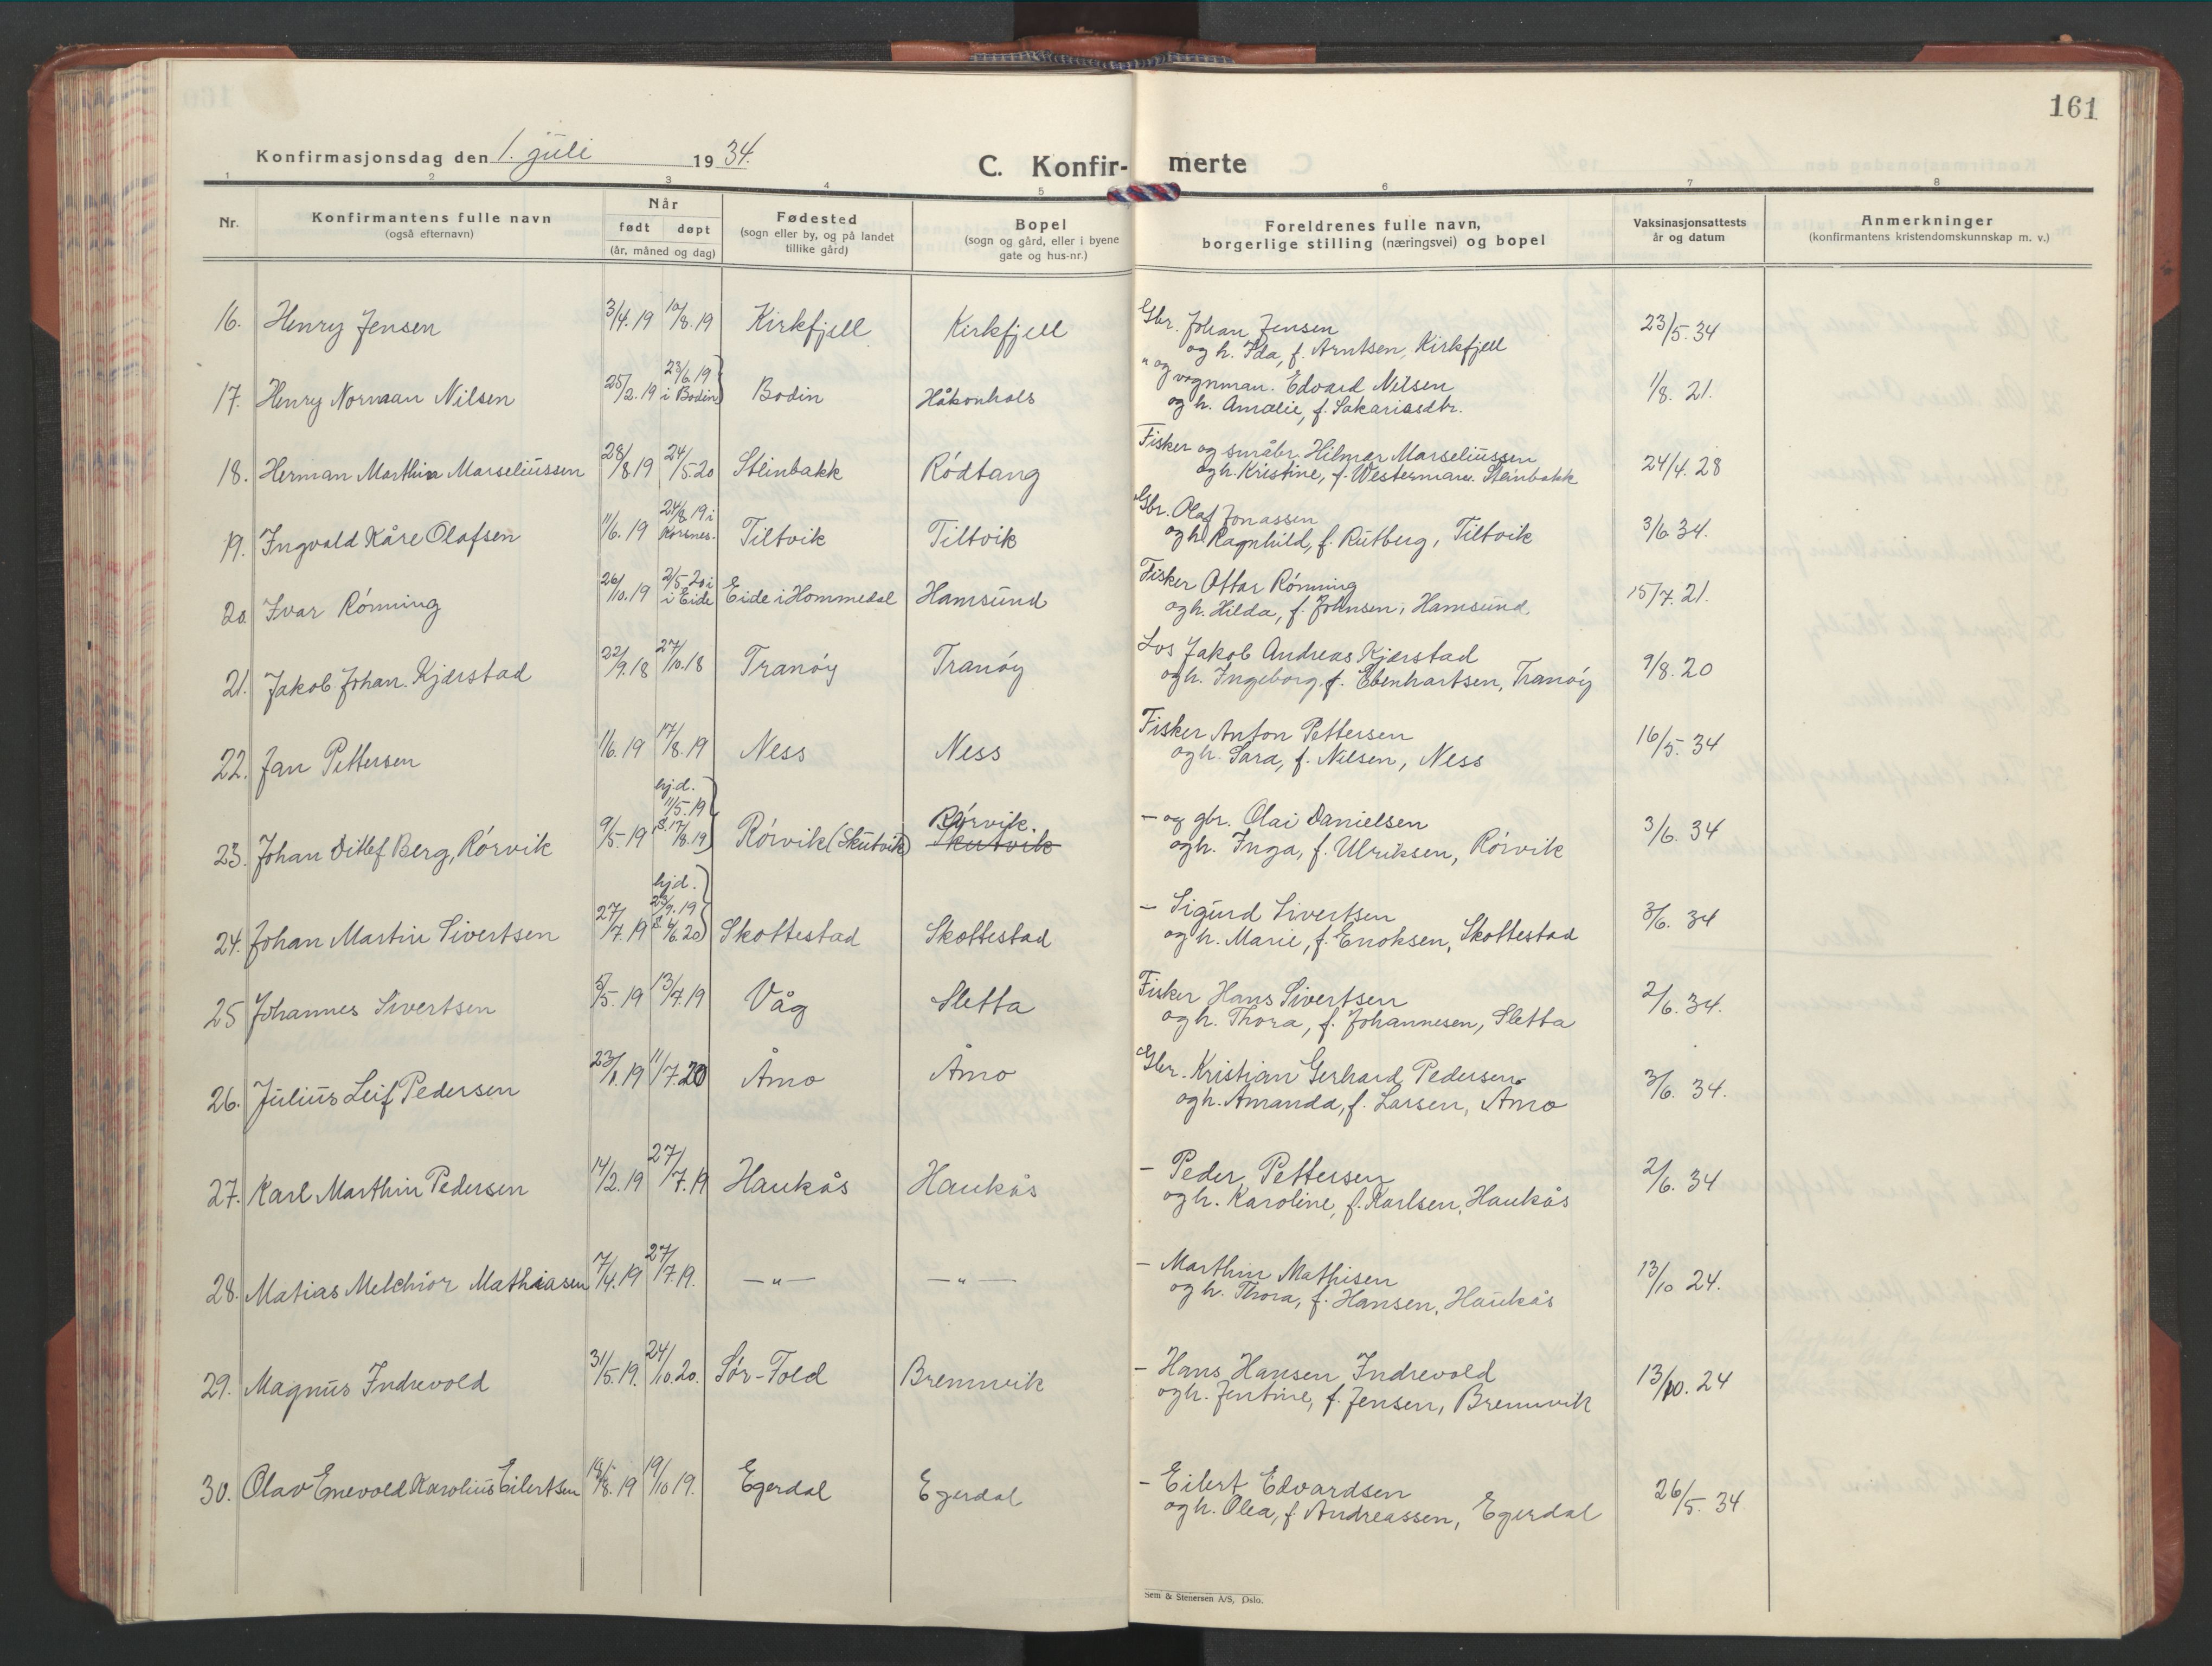 161
Konfirmasjonsdag den 1. juli 1934.
C. Konfir- merte
1 2 3 4 5 6 7 8
Nr.
Konfirmantens fulle navn
(også efternavn)
Når
født døpt
(år, måned og dag)
Fødested
(sogn eller by, og på landet
tillike gård)
Bopel
(sogn og gård, eller i byene
gate og hus-nr.)
Foreldrenes fulle navn,
borgerlige stilling (næringsvei) og bopel
Vaksinasjonsattests
år og datum
Anmerkninger
(konfirmantens kristendomskunnskap m. v.)
16. Henry Jensen 3/4.19 10/8.19 Kirkfjell Kirkfjell Gbr. Johan Jensen 23/5.34
og h. Ida, f. Arntsen, Kirkfjell
17. Henry Norman Nilsen 25/2.19 23/6.19 i Bodin Bodin Håkonhals " og vognman. Edvard Nilsen 1/8. 21.
og h. Amalie, f. Sakariasdtr.
18. Herman Marthin Marseliussen 28/8 19 24/5.20 Steinbakk Rødtang Fisker og småbr. Hilmar Marseliussen 24/4.28
og h. Kristine, f. Westerman. Steinbakk
19. Ingvald Kåre Olafsen 11/6.19 24/8.19 i Korsnes. Tiltvik Tiltvik Gbr. Olaf Jonassen 3/6 34.
og h. Ragnhild, f. Rutberg, Tiltvik
20 Ivar Rønning 26/10.19 2/5.20 i i Eide Eide i Hommedal Hamsund Fisker Ottar Rønning 15/7.21.
og h. Hilda, f. Johnsen, Hamsund.
21. Jakob Johan Kjærstad 22/9.18 27/10.18 Tranøy Tranøy Los Jakob Andreas Kjærstad 9/8.20
og h. Ingeborg, f. Ebenhartsen, Tranøy
22. Jan Pettersen 1/6.19 17/8.19 Ness Ness Fisker Anton Pettersen 16/5.34
og h. Sara, f. Nilsen, Ness
23. Johan Ditlef Berg, Rørvik 9/5.19 hj.d. 11/5.19 s. 17/8.19 Rørvik (Skutvik) Rørvik. Skutvik – og gbr. Olai Danielsen 3/6.34
og h. Inga, f. Ulriksen, Rørvik
24. Johan Martin Sivertsen 27/7.19 hjd. 23/9.19 s. 4/6.20 Skottestad Skottestad – Sigurd Sivertsen 3/6.34
og h. Marie, f. Enoksen, Skottestad
25 Johannes Sivertsen 5/5.19 13/7.19 Våg Sletta Fisker Hans Sivertsen 2/6.34.
og h. Thora, f. Johannesen, Sletta
26. Julius Leif Pedersen 23/1.19 11/7.20 Åmo Åmo Gbr. Kristian Gerhard Pedersen 3/6.34.
og h. Amanda, f. Larsen, Åmo
27. Karl Marthin Pedersen 14/2.19 27/7.19 Haukås Haukås – Peder Pettersen 2/6.34
og h. Karoline, f. Karlsen, Haukås
28. Matias Melchior Mathiasen 7/4.19 27/7.19. —"— —"— – Marthin Mathisen 13/10 24.
og h. Thora, f. Hansen, Haukås
29. Magnus Indrevold 31/5.19. 24/10.20. Sør-Fold Bremnvik – Hans Hansen Indrevold 13/10.24
og h. Jentine, f. Jensen, Bremnvik
30. Olav Enevold Karolius Eilertsen 18/8.19 19/10 19. Egerdal Egerdal – Eilert Edvardsen 26/5.34
og h. Olea, f. Andreassen, Egerdal
Sem & Stenersen A/S, Oslo.